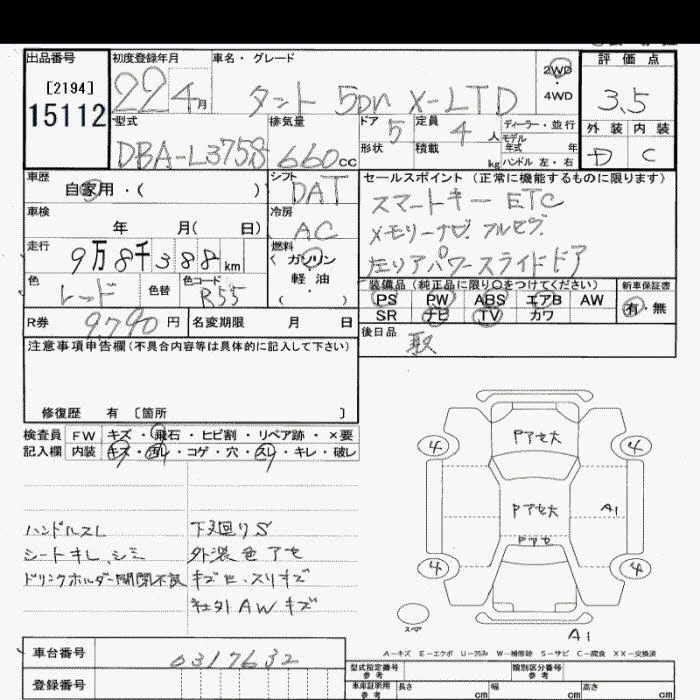 出品番号
[2194]
15112
初度登録年月
22 4月
車名・グレード
タント 5DR X-LTD
2WD
4WD
評価点
3.5
外装 内装
D C
型式
DBA-L375S
排気量
660cc
ドア 5
形状
定員 4 人
積載 kg
ディーラー・並行
モデル
年式 年
ハンドル 左・右
車歴
自家用・( )
シフト
DAT
セールスポイント(正常に機能するものに限ります)
スマートキー ETC
メモリーナビ. フルセグ.
左リアパワースライドドア
車検
年 月( 日)
冷房
AC
走行
9万8千388km
燃料
ガソリン
軽油
( ・ )
色
レッド
色替
色コード
R55
装備品(純正品に限り〇をつけてください)
PS PW ABS エアB AW
SR ナビ TV カワ
新車保証書
有・無
R券
9,790円
名変期限 月 日
後日品
取
注意事項申告欄(不具合内容等は具体的に記入して下さい)
修復歴 有 [箇所 ]
検査員 FW キズ・飛石・ヒビ割・リペア跡・×要
記入欄 内装 キズ・汚レ・コゲ・穴・スレ・キレ・破レ
ハンドルスレ
シートキレ、シミ
ドリンクホルダー開閉不良
下廻りS
外装色アセ
キズ E、スリキズ
社外AWキズ
Pアセ大
4 4
Pアセ大
A1
Pアセ
4 4
スペア
A1
A-キズ E-エクボ U-凹み W-補修跡 S-サビ C-腐食 XX-交換済
車台番号
0317632
登録番号
型式指定番号
参考
類別区分番号
参考
車庫証明用
参考
長さ cm
幅 cm
高さ cm